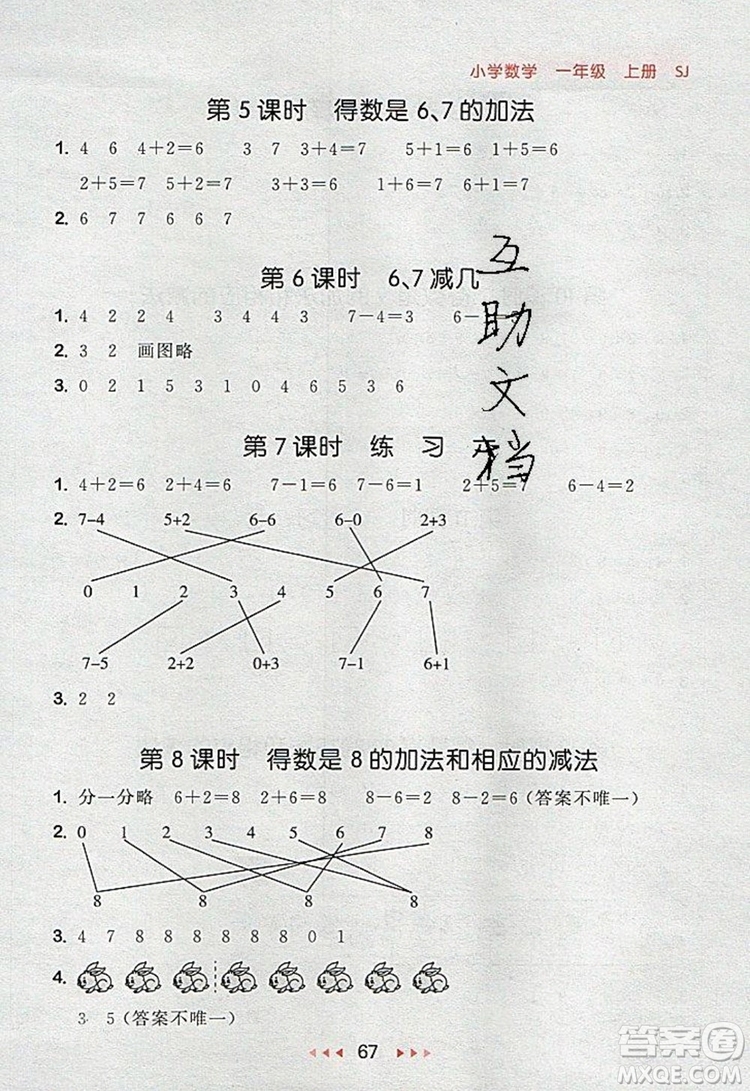 小学数学 一年级 上册 SJ
第5课时 得数是6、7的加法
1. 4 6 4+2=6 3 7 3+4=7 5+1=6 1+5=6
2+5=7 5+2=7 3+3=6 1+6=7 6+1=7
2. 6 7 7 6 6 7
第6课时 6、7减几
1. 4 2 2 4 3 4 4 3 7-4=3 6-
2. 3 2 画图略
3. 0 2 1 5 3 1 0 4 6 5 3 6
第7课时 练 习
1. 4+2=6 2+4=6 7-1=6 7-6=1 2+5=7 6-4=2
2. 7-4 5+2 6-6 6-0 2+3
0 1 2 3 4 5 6 7
7-5 2+2 0+3 7-1 6+1
3. 2 2
第8课时 得数是8的加法和相应的减法
1. 分一分略 6+2=8 2+6=8 8-6=2 8-2=6(答案不唯一)
2. 0 1 2 3 4 5 6 7 8
8 8 8 8
3. 4 7 8 8 8 8 8 8 0 1
4.
3 5(答案不唯一)
67
互助文档
答案圈
MXQE.COM